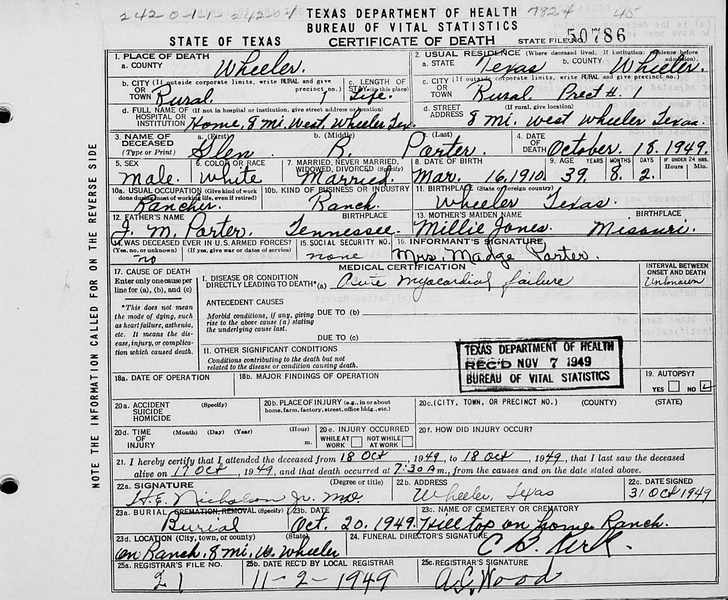 2420-1-1 24204 TEXAS DEPARTMENT OF HEALTH 7824 45
BUREAU OF VITAL STATISTICS
STATE OF TEXAS CERTIFICATE OF DEATH STATE FILE NO. 50786
1. PLACE OF DEATH 2. USUAL RESIDENCE (Where deceased lived. If institution: residence before admission)
a. COUNTY Wheeler. a. STATE Texas b. COUNTY Wheeler.
b. CITY (If outside corporate limits, write RURAL and give precinct no.) OR TOWN Rural. c. LENGTH OF STAY (in this place) Life. c. CITY (If outside corporate limits, write RURAL and give precinct no.) OR TOWN Rural Prect #. 1
d. FULL NAME OF (If not in hospital or institution, give street address or location) HOSPITAL OR INSTITUTION Home, 8 mi. West Wheeler Tex. d. STREET ADDRESS (If rural, give location) 8 mi. west Wheeler Texas.
3. NAME OF DECEASED (Type or Print) a. (First) Glen b. (Middle) B. c. (Last) Porter. 4. DATE OF DEATH October. 18. 1949.
5. SEX male. 6. COLOR OR RACE White 7. MARRIED, NEVER MARRIED, WIDOWED, DIVORCED (Specify) Married. 8. DATE OF BIRTH Mar. 16, 1910. 9. AGE YEARS 39. MONTHS 8. DAYS 2. IF UNDER 24 HRS. Hours Min.
10a. USUAL OCCUPATION (Give kind of work done during most of working life, even if retired) Rancher. 10b. KIND OF BUSINESS OR INDUSTRY Ranch. 11. BIRTHPLACE (State or foreign country) Wheeler Texas.
12. FATHER'S NAME J. M. Porter. BIRTHPLACE Tennessee. 13. MOTHER'S MAIDEN NAME Millie Jones. BIRTHPLACE Missouri.
14. WAS DECEASED EVER IN U.S. ARMED FORCES? (Yes, no, or unknown) (If yes, give war or dates of service) no 15. SOCIAL SECURITY NO. none 16. INFORMANT'S SIGNATURE Mrs. Madge Porter.
MEDICAL CERTIFICATION
17. CAUSE OF DEATH Enter only one cause per line for (a), (b), and (c) I. DISEASE OR CONDITION DIRECTLY LEADING TO DEATH* (a) Acute myocardial failure INTERVAL BETWEEN ONSET AND DEATH Unknown
*This does not mean the mode of dying, such as heart failure, asthenia, etc. It means the disease, injury, or complication which caused death.
ANTECEDENT CAUSES
Morbid conditions, if any, giving rise to the above cause (a) stating the underlying cause last. DUE TO (b)
DUE TO (c)
11. OTHER SIGNIFICANT CONDITIONS
Conditions contributing to the death but not related to the disease or condition causing death.
TEXAS DEPARTMENT OF HEALTH
REC'D NOV 7 1949
BUREAU OF VITAL STATISTICS
18a. DATE OF OPERATION 18b. MAJOR FINDINGS OF OPERATION 19. AUTOPSY? YES NO
20a. ACCIDENT SUICIDE HOMICIDE (Specify) 20b. PLACE OF INJURY (e.g., in or about home, farm, factory, street, office bldg., etc.) 20c. (CITY, TOWN, OR PRECINCT NO.) (COUNTY) (STATE)
20d. TIME OF INJURY (Month) (Day) (Year) (Hour) m. 20e. INJURY OCCURRED WHILE AT WORK NOT WHILE AT WORK 20f. HOW DID INJURY OCCUR?
21. I hereby certify that I attended the deceased from 18 Oct, 1949, to 18 Oct, 1949, that I last saw the deceased
alive on 17 Oct, 1949, and that death occurred at 7:30 A m., from the causes and on the date stated above.
22a. SIGNATURE (Degree or title) H. E. Nicholson Jr. MD 22b. ADDRESS Wheeler, Texas 22c. DATE SIGNED 31 Oct 1949
23a. BURIAL, CREMATION, REMOVAL (Specify) Burial 23b. DATE Oct. 20. 1949. 23c. NAME OF CEMETERY OR CREMATORY Hilltop on home Ranch.
23d. LOCATION (City, town, or county) (State) on Ranch, 8 mi, W. Wheeler 24. FUNERAL DIRECTOR'S SIGNATURE C. B. Kirk.
25a. REGISTRAR'S FILE NO. 21 25b. DATE REC'D BY LOCAL REGISTRAR 11-2-1949 25c. REGISTRAR'S SIGNATURE A. C. Wood
NOTE THE INFORMATION CALLED FOR ON THE REVERSE SIDE